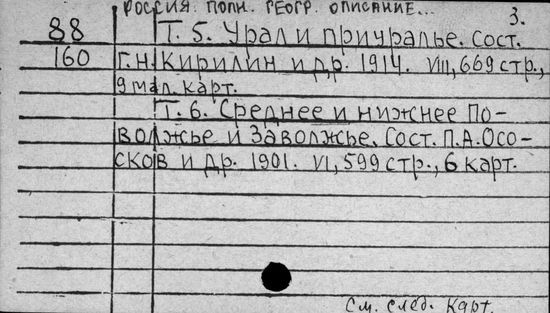 РОССИЯ. ПОЛН. ГЕОГР. ОПИСАНИЕ... 3.
88 Т. 5. Урал и приуралье. Сост.
160 Г.Н. Кирилин и др. 1914. VIII, 669 стр.,
9 мал. карт.
Т. 6. Среднее и нижнее По-
волжье и Заволжье. Сост. П.А. Осо-
сков и др. 1901. VI, 599 стр., 6 карт.
См. след. карт.